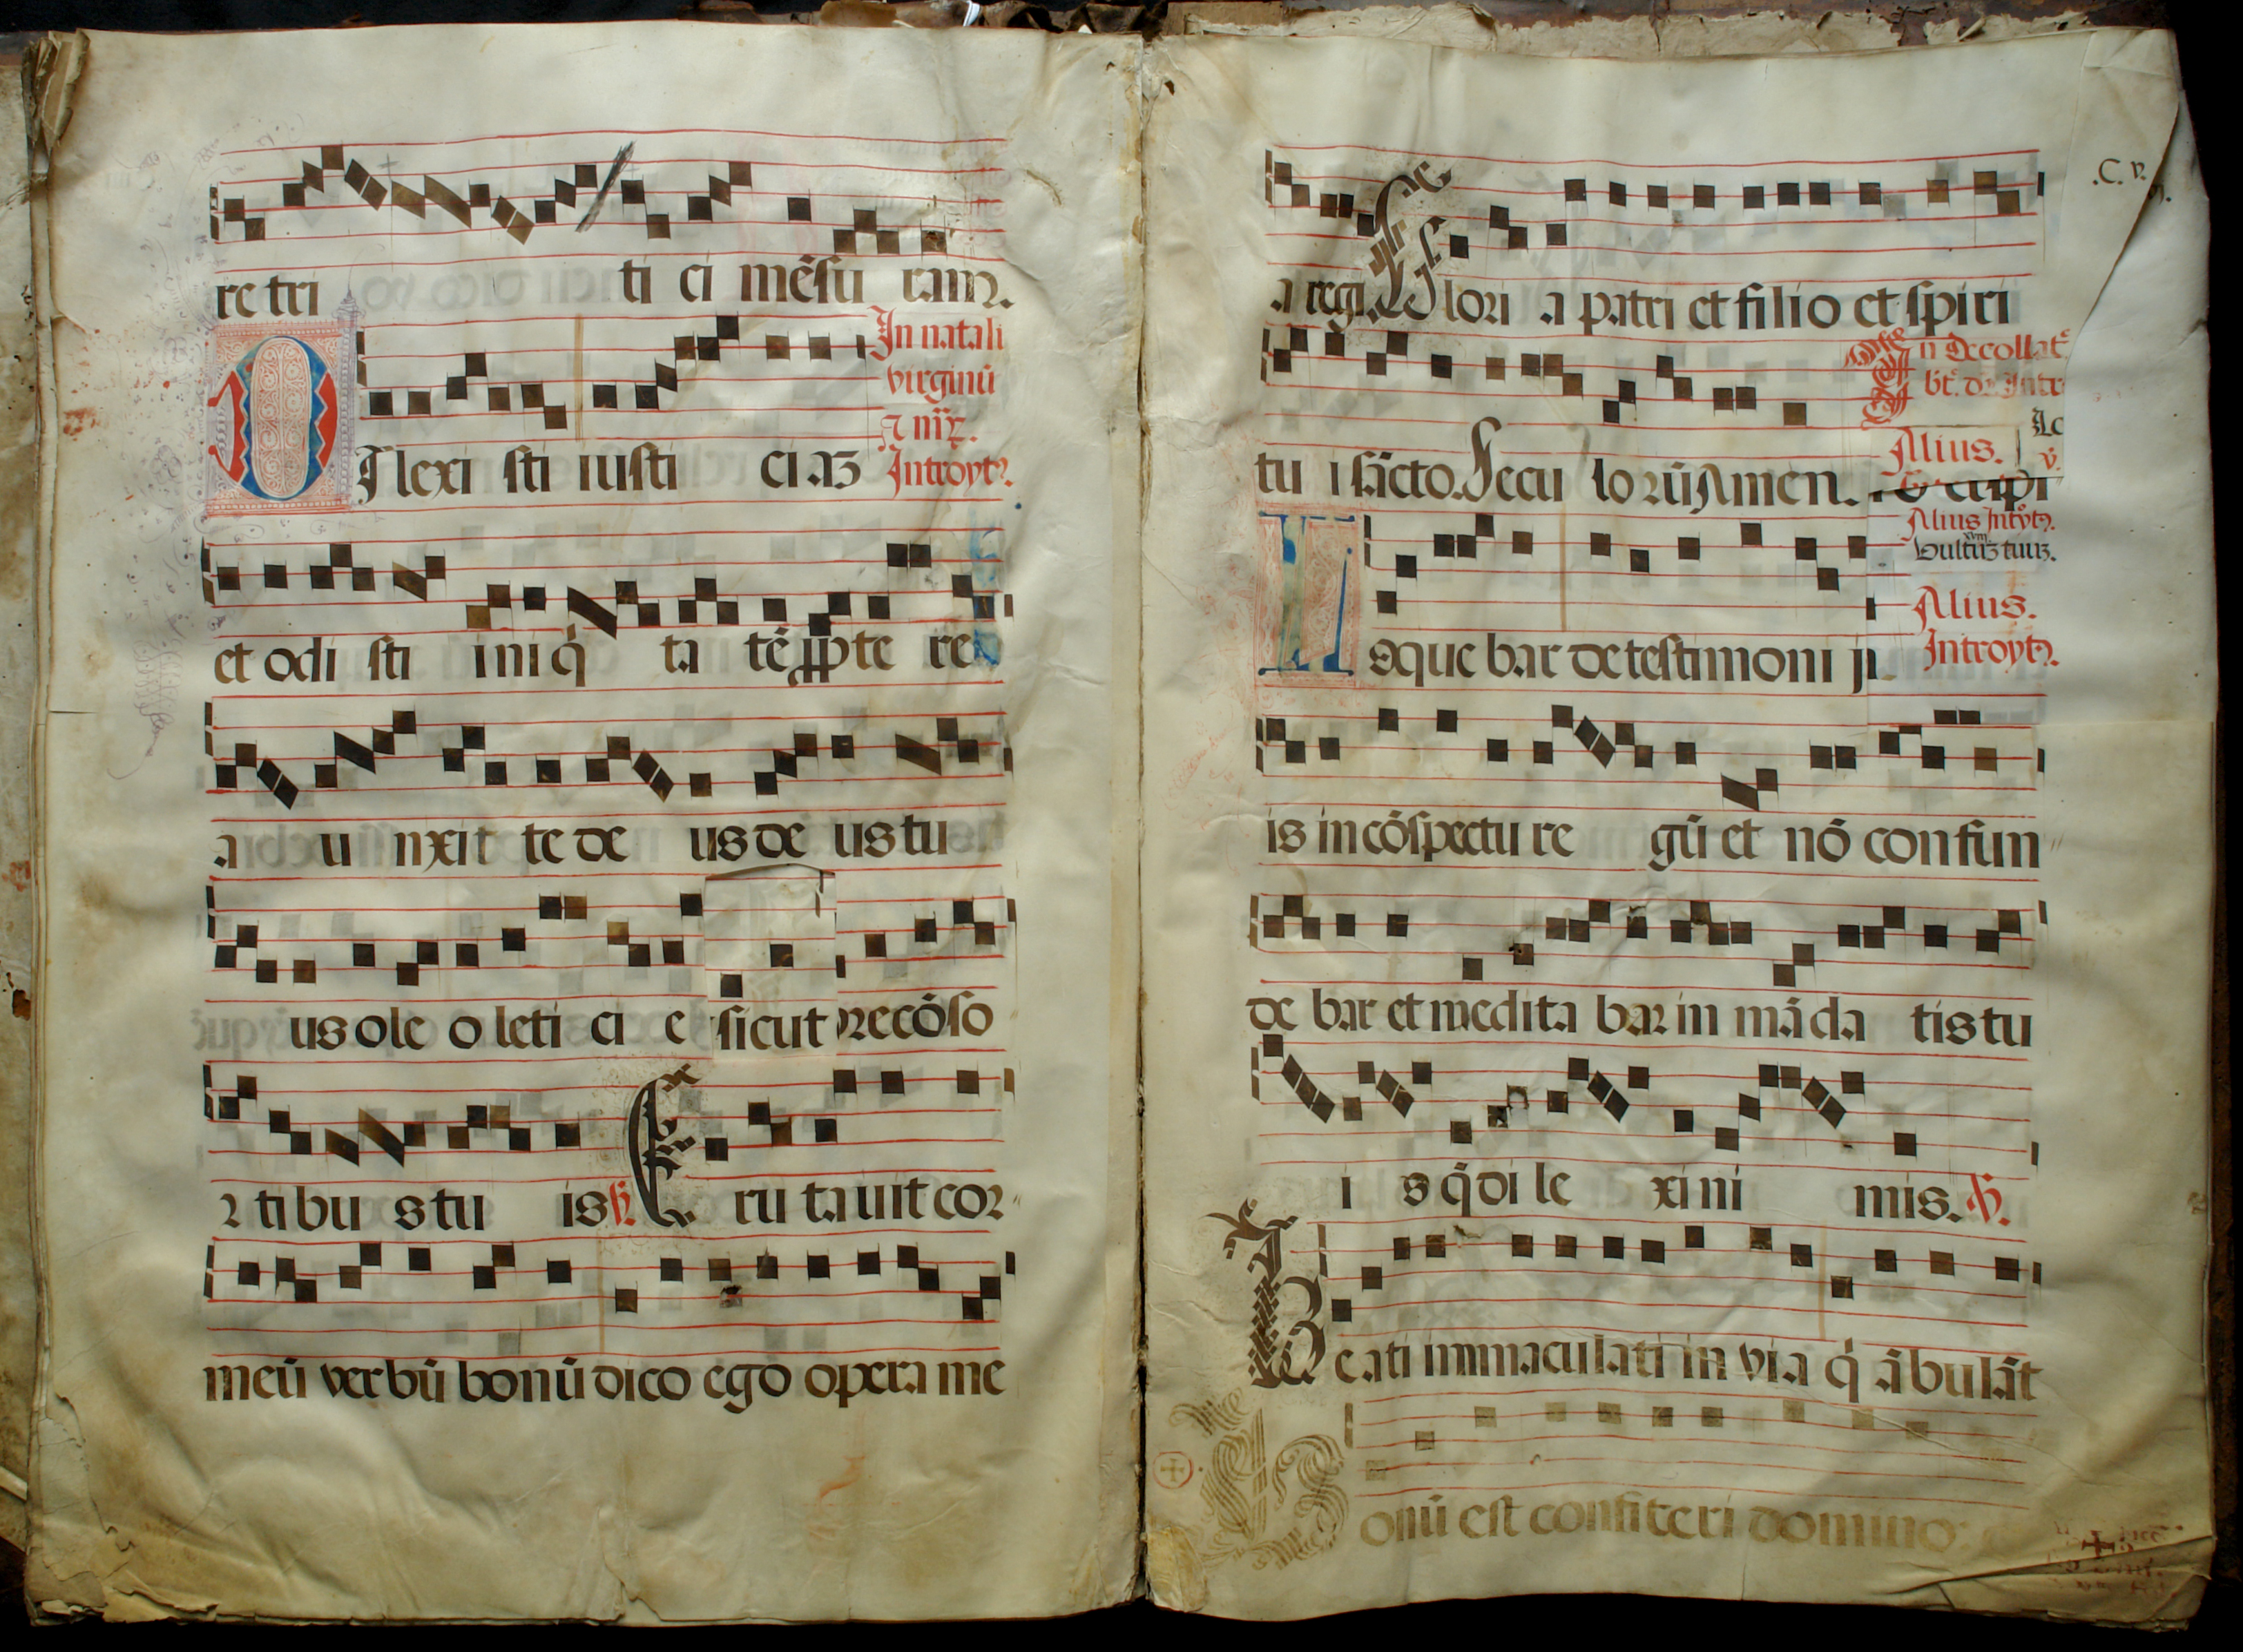 re tri ti ci mẽsu ram.
In natali
virginũ
Introyt9.
Dilexi sti iusti ci aз
et odi sti ini q̇ ta tẽ ꝓpte re
a u nxit te de us de us tu
us ole o leti ci e sicut p̱recõso
r tibu s tu is ℣. Eru tauit cor
meũ verbũ bonũ dico ego opera me
.C. v.
a regi. Glori a patri et filio et spiri
In Decollat̃
tu i sãcto. Secu lorũ Amen.
Alius.
Alius Introyt9.
vultuз tuuз.
Alius.
Introyt9.
Loque bar de testimoni ji
is in cõspectu re gũ et nõ confun
de bar et medita bar in mãda tis tu
i s q̇ di le xi ni mis. ℣.
Beati immaculati in via q̇ ãbulãt
Bonũ est confiteri domino: